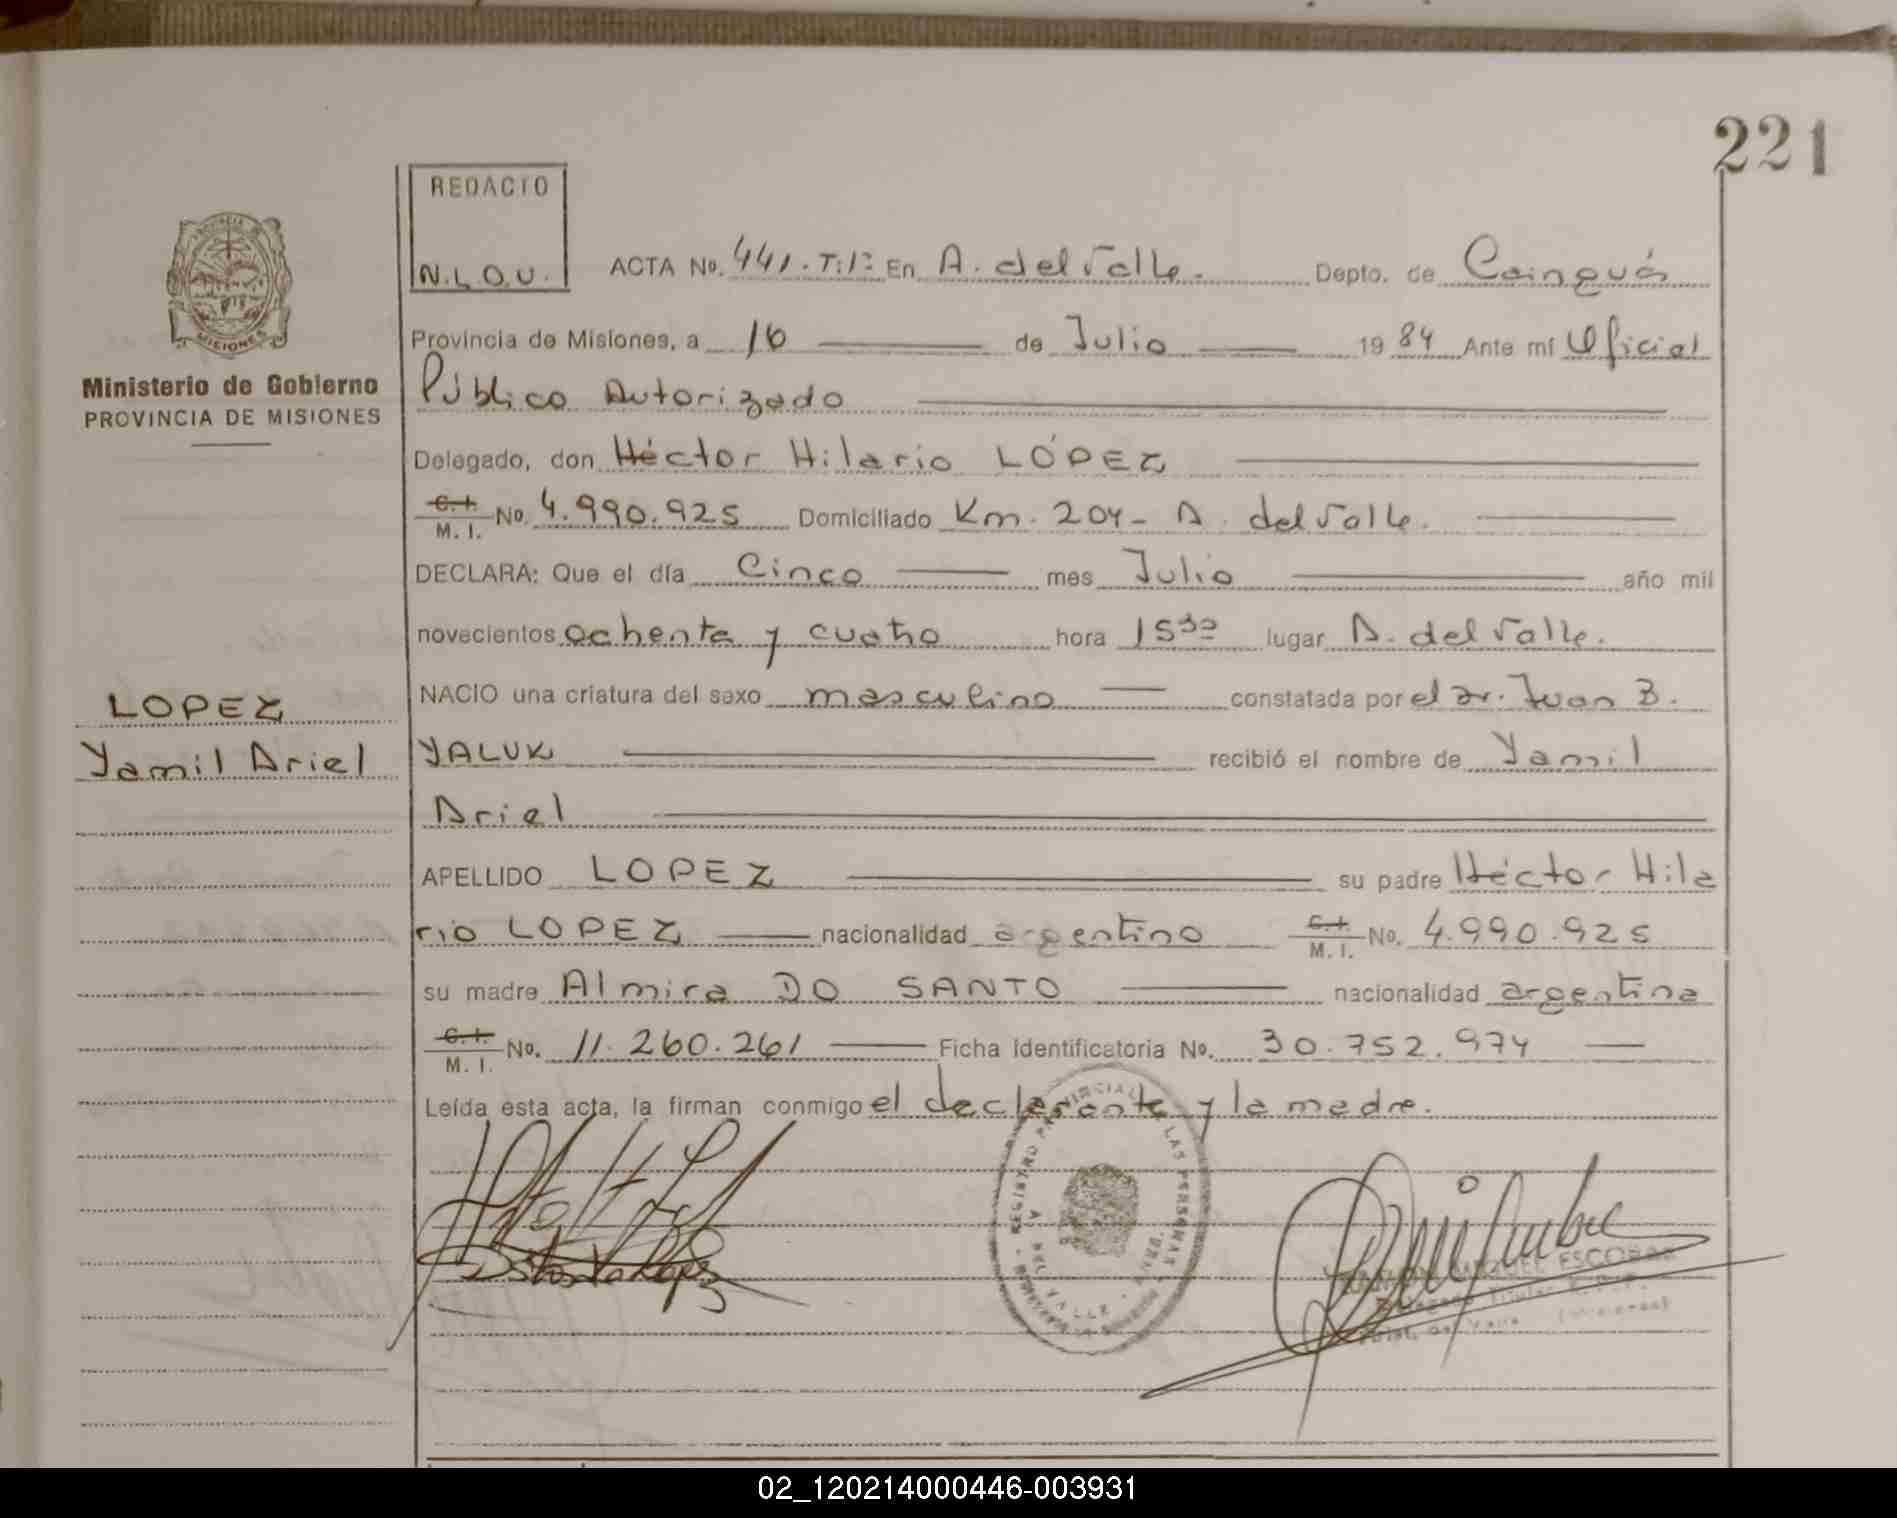 221
REDACTO
N.L.O.U.
ACTA No. 441. T: 1º En A. del Valle. Depto. de Cainguás
Provincia de Misiones, a 16 de Julio 1984 Ante mí Oficial
Público Autorizado
Ministerio de Gobierno
PROVINCIA DE MISIONES
Delegado, don Héctor Hilario LÓPEZ
C.I. M.I. No. 4.990.925 Domiciliado Km. 204- A. del Valle.
DECLARA: Que el día Cinco mes Julio año mil
novecientos ochenta y cuatro hora 15³⁰ lugar A. del Valle.
NACIO una criatura del sexo masculino constatada por el Dr. Juan B.
LOPEZ
Yamil Ariel
YALUK recibió el nombre de Yamil
Ariel
APELLIDO LOPEZ su padre Héctor Hila
rio LOPEZ nacionalidad argentino C.I. M.I. No. 4.990.925
su madre Almira DO SANTO nacionalidad argentina
C.I. M.I. No. 11.260.261 Ficha Identificatoria No. 30.752.974
Leída esta acta, la firman conmigo el declarante y la madre.
REGISTRO PROVINCIAL DE LAS PERSONAS
A. DEL VALLE
MIGUEL ESCOBAR
Titular
02_120214000446-003931